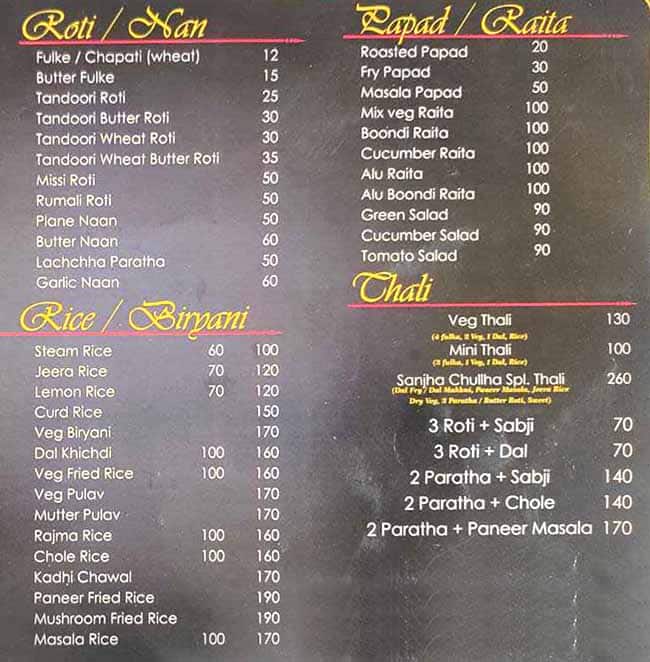 Roti / Nan
Fulke / Chapati (wheat) 12
Butter Fulke 15
Tandoori Roti 25
Tandoori Butter Roti 30
Tandoori Wheat Roti 30
Tandoori Wheat Butter Roti 35
Missi Roti 50
Rumali Roti 50
Plane Naan 50
Butter Naan 60
Lachchha Paratha 50
Garlic Naan 60
Rice / Biryani
Steam Rice 60 100
Jeera Rice 70 120
Lemon Rice 70 120
Curd Rice 150
Veg Biryani 170
Dal Khichdi 100 160
Veg Fried Rice 100 160
Veg Pulav 170
Mutter Pulav 170
Rajma Rice 100 160
Chole Rice 100 160
Kadhi Chawal 170
Paneer Fried Rice 190
Mushroom Fried Rice 190
Masala Rice 100 170
Papad / Raita
Roasted Papad 20
Fry Papad 30
Masala Papad 50
Mix veg Raita 100
Boondi Raita 100
Cucumber Raita 100
Alu Raita 100
Alu Boondi Raita 100
Green Salad 90
Cucumber Salad 90
Tomato Salad 90
Thali
Veg Thali 130
(4 fulka, 2 Veg, 1 Dal, Rice)
Mini Thali 100
(3 fulka, 1 Veg, 1 Dal, Rice)
Sanjha Chullha Spl. Thali 260
(Dal Fry / Dal Makhni, Paneer Masala, Jeera Rice
Dry Veg, 2 Paratha / Butter Roti, Sweet)
3 Roti + Sabji 70
3 Roti + Dal 70
2 Paratha + Sabji 140
2 Paratha + Chole 140
2 Paratha + Paneer Masala 170